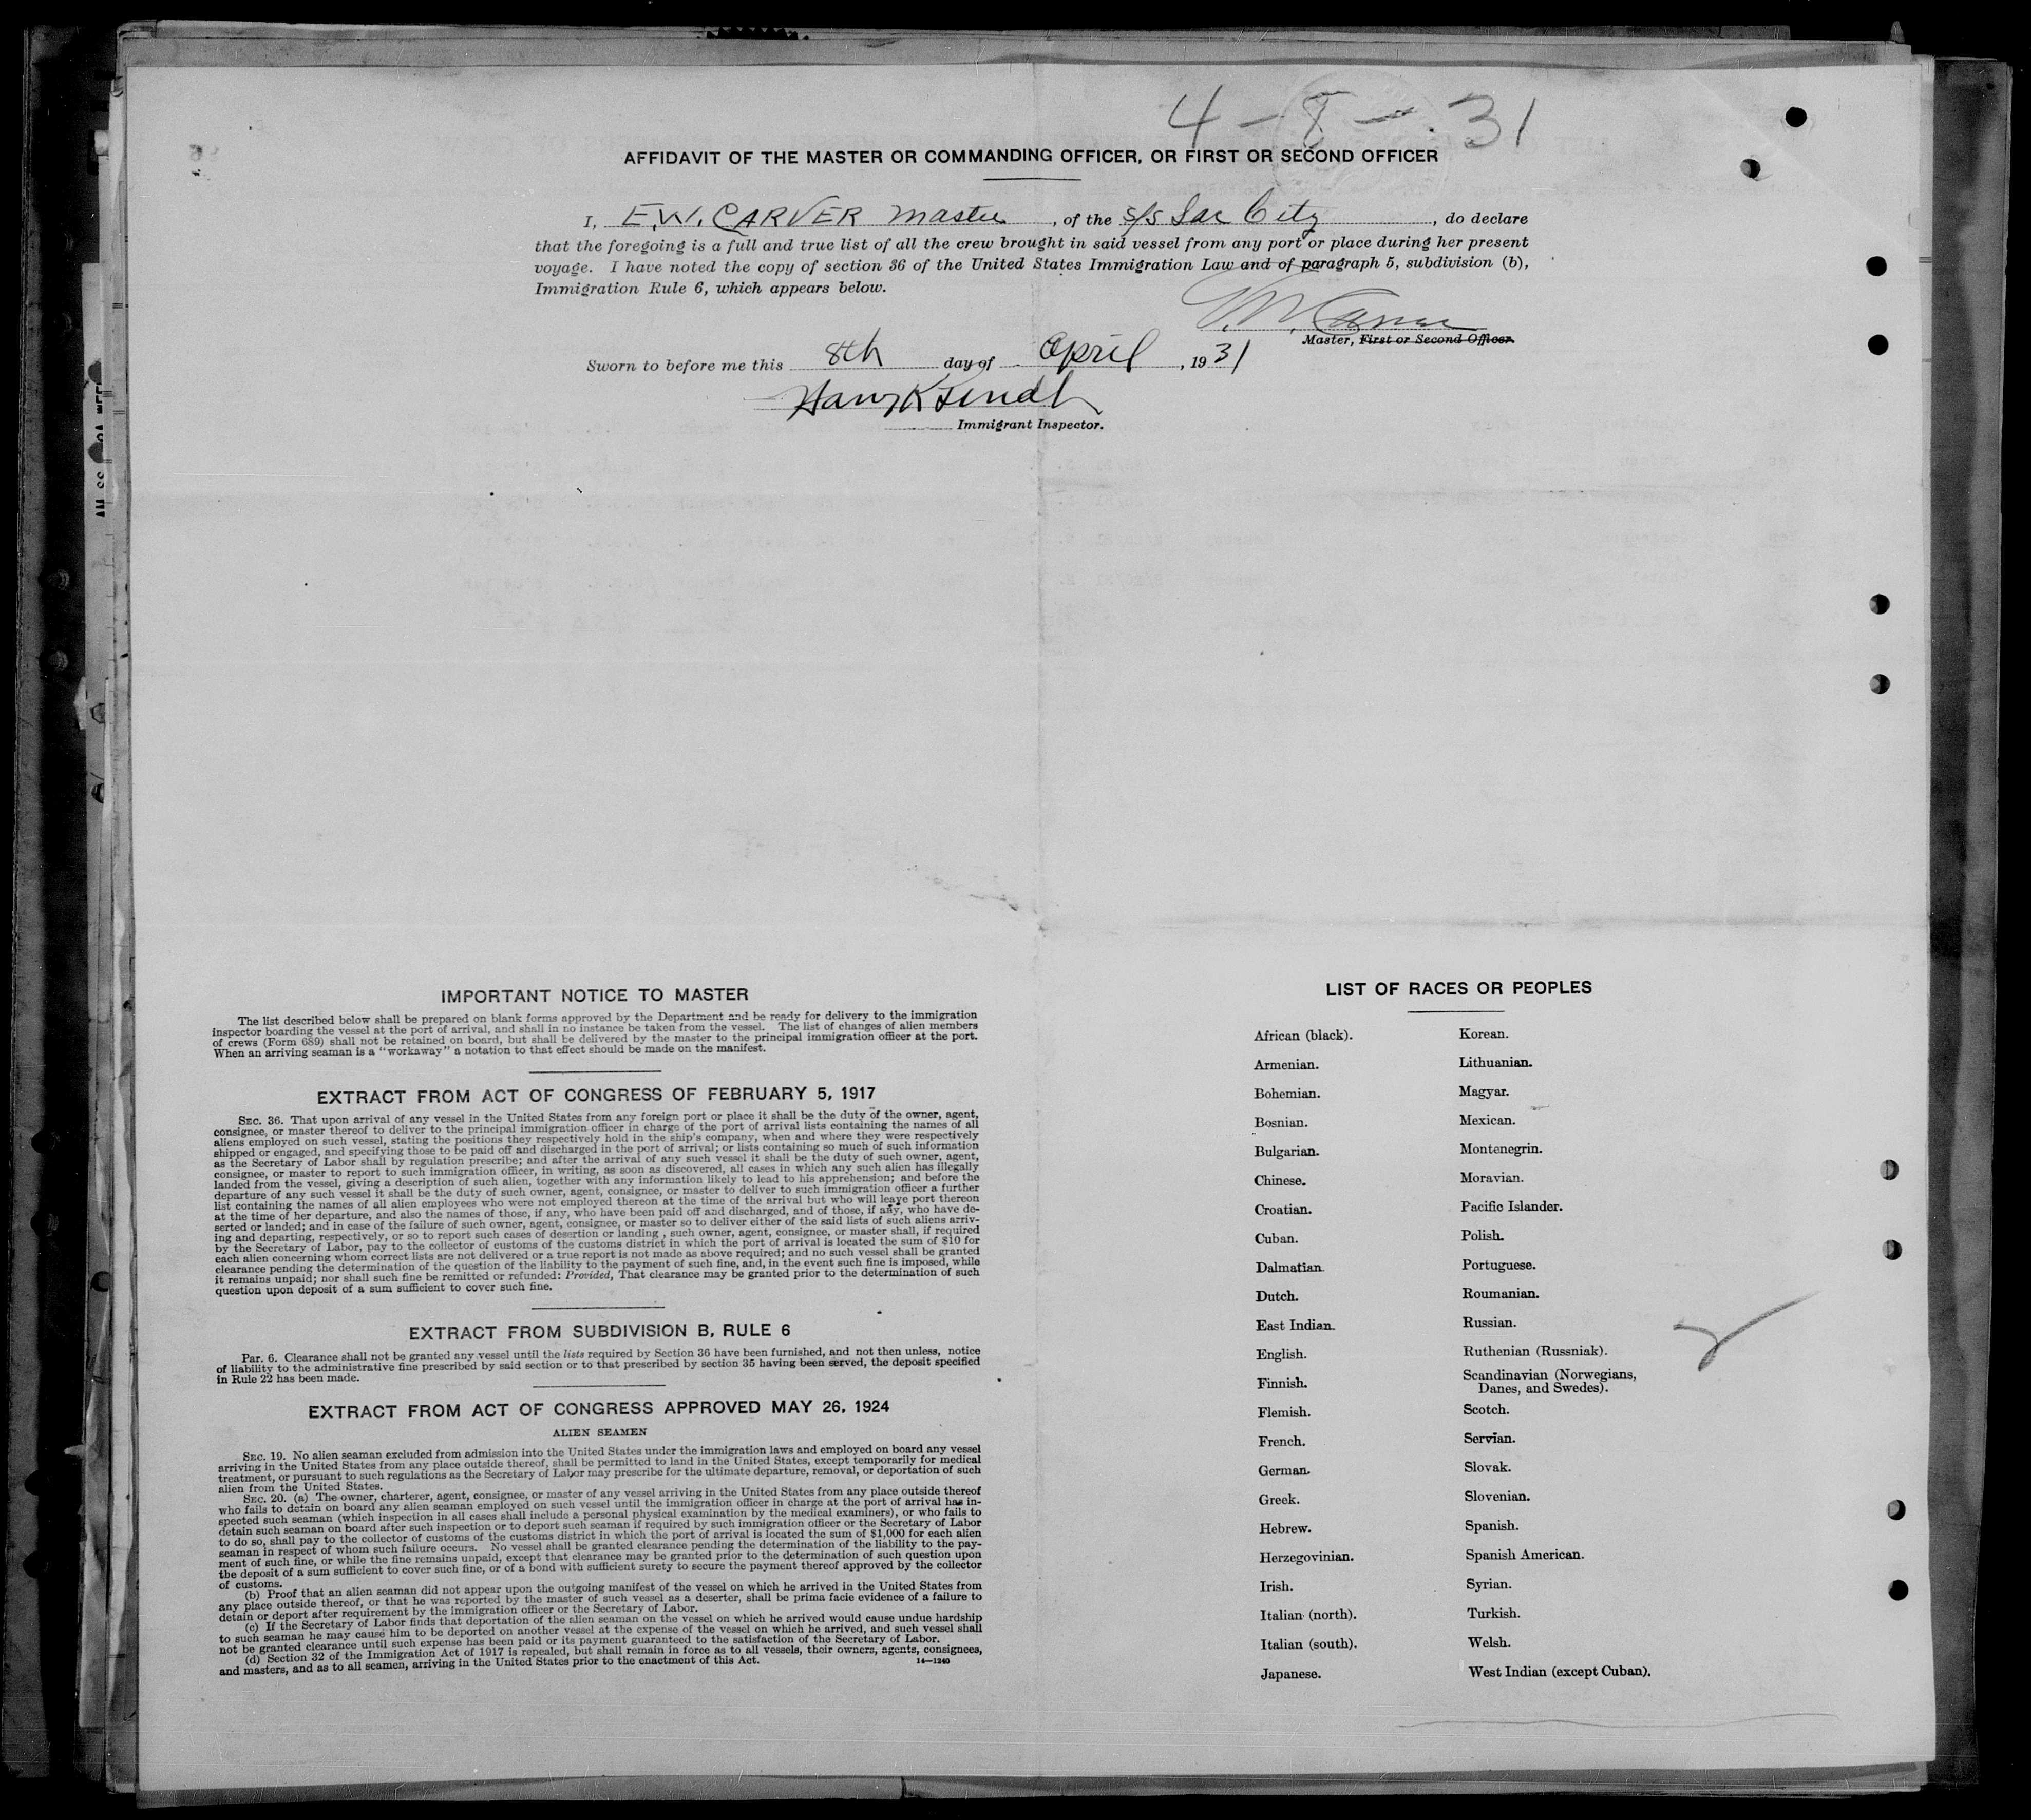 4 - 8 - 31
AFFIDAVIT OF THE MASTER OR COMMANDING OFFICER, OR FIRST OR SECOND OFFICER
I, E.W. CARVER Master, of the S/S Sac City, do declare
that the foregoing is a full and true list of all the crew brought in said vessel from any port or place during her present
voyage. I have noted the copy of section 36 of the United States Immigration Law and of paragraph 5, subdivision (b),
Immigration Rule 6, which appears below.
E.W. Carver
Master, First or Second Officer.
Sworn to before me this 8th day of April, 1931
Immigrant Inspector.
IMPORTANT NOTICE TO MASTER
The list described below shall be prepared on blank forms approved by the Department and be ready for delivery to the immigration
inspector boarding the vessel at the port of arrival, and shall in no instance be taken from the vessel. The list of changes of alien members
of crews (Form 689) shall not be retained on board, but shall be delivered by the master to the principal immigration officer at the port.
When an arriving seaman is a "workaway" a notation to that effect should be made on the manifest.
EXTRACT FROM ACT OF CONGRESS OF FEBRUARY 5, 1917
SEC. 36. That upon arrival of any vessel in the United States from any foreign port or place it shall be the duty of the owner, agent,
consignee, or master thereof to deliver to the principal immigration officer in charge of the port of arrival lists containing the names of all
aliens employed on such vessel, stating the positions they respectively hold in the ship's company, when and where they were respectively
shipped or engaged, and specifying those to be paid off and discharged in the port of arrival; or lists containing so much of such information
as the Secretary of Labor shall by regulation prescribe; and after the arrival of any such vessel it shall be the duty of such owner, agent,
consignee, or master to report to such immigration officer, in writing, as soon as discovered, all cases in which any such alien has illegally
landed from the vessel, giving a description of such alien, together with any information likely to lead to his apprehension; and before the
departure of any such vessel it shall be the duty of such owner, agent, consignee, or master to deliver to such immigration officer a further
list containing the names of all alien employees who were not employed thereon at the time of the arrival but who will leave port thereon
at the time of her departure, and also the names of those, if any, who have been paid off and discharged, and of those, if any, who have de-
serted or landed; and in case of the failure of such owner, agent, consignee, or master so to deliver either of the said lists of such aliens arriv-
ing and departing, respectively, or so to report such cases of desertion or landing , such owner, agent, consignee, or master shall, if required
by the Secretary of Labor, pay to the collector of customs of the customs district in which the port of arrival is located the sum of $10 for
each alien concerning whom correct lists are not delivered or a true report is not made as above required; and no such vessel shall be granted
clearance pending the determination of the question of the liability to the payment of such fine, and, in the event such fine is imposed, while
it remains unpaid; nor shall such fine be remitted or refunded: Provided, That clearance may be granted prior to the determination of such
question upon deposit of a sum sufficient to cover such fine.
EXTRACT FROM SUBDIVISION B, RULE 6
Par. 6. Clearance shall not be granted any vessel until the lists required by Section 36 have been furnished, and not then unless, notice
of liability to the administrative fine prescribed by said section or to that prescribed by section 35 having been served, the deposit specified
in Rule 22 has been made.
EXTRACT FROM ACT OF CONGRESS APPROVED MAY 26, 1924
ALIEN SEAMEN
SEC. 19. No alien seaman excluded from admission into the United States under the immigration laws and employed on board any vessel
arriving in the United States from any place outside thereof, shall be permitted to land in the United States, except temporarily for medical
treatment, or pursuant to such regulations as the Secretary of Labor may prescribe for the ultimate departure, removal, or deportation of such
alien from the United States.
SEC. 20. (a) The owner, charterer, agent, consignee, or master of any vessel arriving in the United States from any place outside thereof
who fails to detain on board any alien seaman employed on such vessel until the immigration officer in charge at the port of arrival has in-
spected such seaman (which inspection in all cases shall include a personal physical examination by the medical examiners), or who fails to
detain such seaman on board after such inspection or to deport such seaman if required by such immigration officer or the Secretary of Labor
to do so, shall pay to the collector of customs of the customs district in which the port of arrival is located the sum of $1,000 for each alien
seaman in respect of whom such failure occurs. No vessel shall be granted clearance pending the determination of the liability to the pay-
ment of such fine, or while the fine remains unpaid, except that clearance may be granted prior to the determination of such question upon
the deposit of a sum sufficient to cover such fine, or of a bond with sufficient surety to secure the payment thereof approved by the collector
of customs.
(b) Proof that an alien seaman did not appear upon the outgoing manifest of the vessel on which he arrived in the United States from
any place outside thereof, or that he was reported by the master of such vessel as a deserter, shall be prima facie evidence of a failure to
detain or deport after requirement by the immigration officer or the Secretary of Labor.
(c) If the Secretary of Labor finds that deportation of the alien seaman on the vessel on which he arrived would cause undue hardship
to such seaman he may cause him to be deported on another vessel at the expense of the vessel on which he arrived, and such vessel shall
not be granted clearance until such expense has been paid or its payment guaranteed to the satisfaction of the Secretary of Labor.
(d) Section 32 of the Immigration Act of 1917 is repealed, but shall remain in force as to all vessels, their owners, agents, consignees,
and masters, and as to all seamen, arriving in the United States prior to the enactment of this Act.
14—1240
LIST OF RACES OR PEOPLES
African (black).
Armenian.
Bohemian.
Bosnian.
Bulgarian.
Chinese.
Croatian.
Cuban.
Dalmatian.
Dutch.
East Indian.
English.
Finnish.
Flemish.
French.
German.
Greek.
Hebrew.
Herzegovinian.
Irish.
Italian (north).
Italian (south).
Japanese.
Korean.
Lithuanian.
Magyar.
Mexican.
Montenegrin.
Moravian.
Pacific Islander.
Polish.
Portuguese.
Roumanian.
Russian.
Ruthenian (Russniak).
Scandinavian (Norwegians,
Danes, and Swedes).
Scotch.
Servian.
Slovak.
Slovenian.
Spanish.
Spanish American.
Syrian.
Turkish.
Welsh.
West Indian (except Cuban).